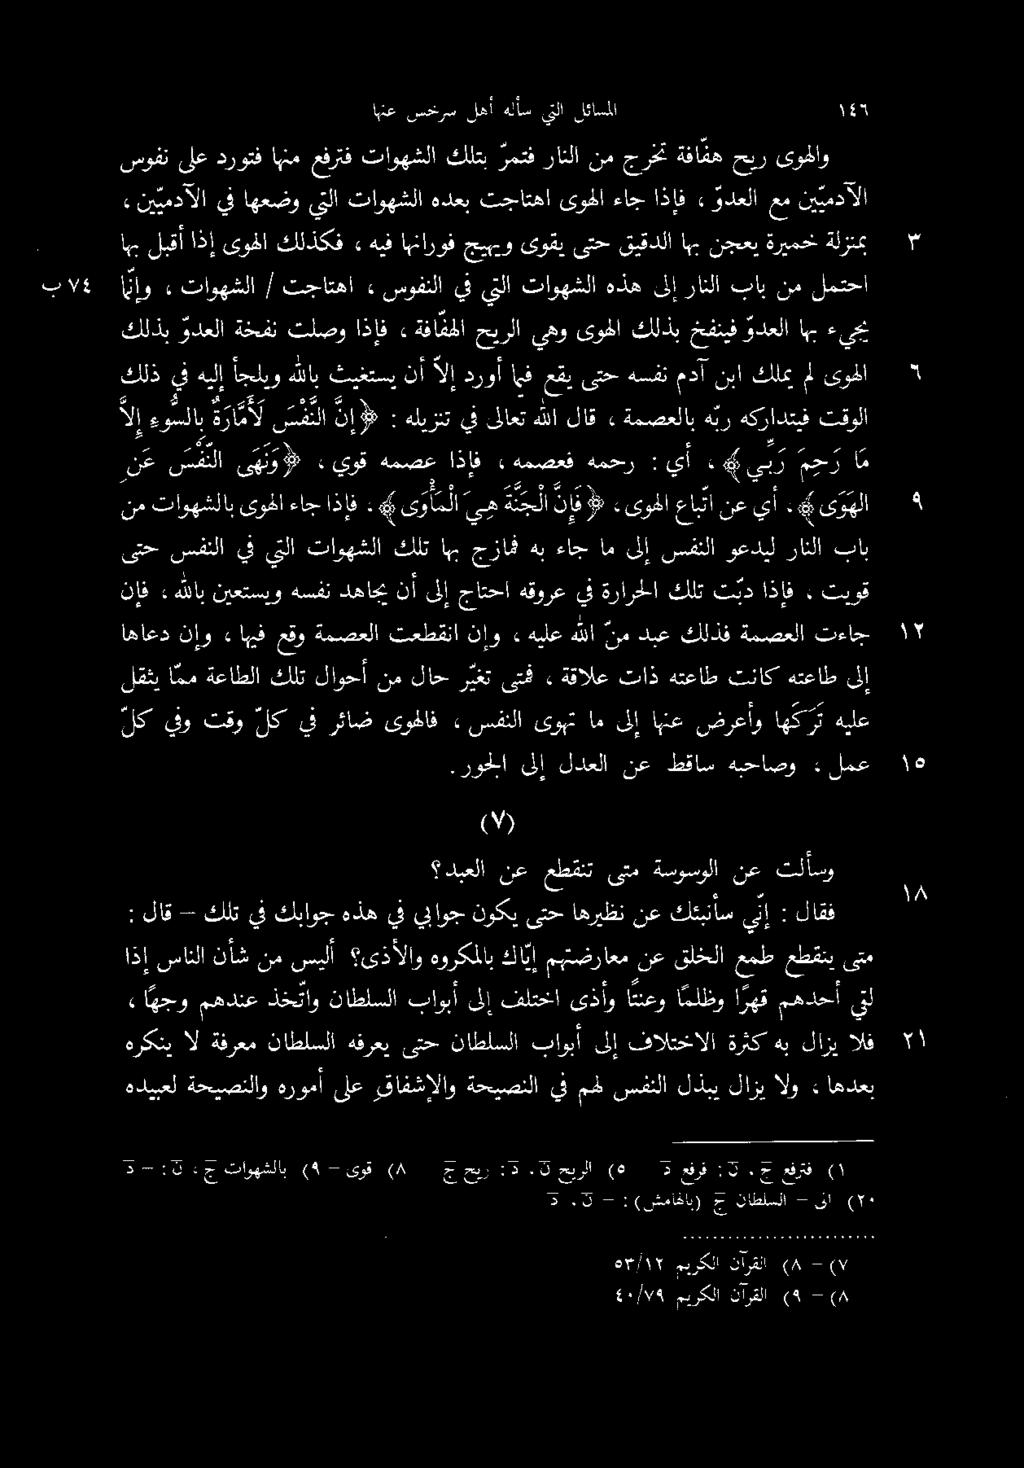 ١٤٦ المسائل التي سأله أهل سرخس عنها
والهوى ريح هفّافة تخرج من النار فتمرّ بتلك الشهوات فترفع منها فتورد على نفوس
الآدميّين مع العدوّ ، فإذا جاء الهوى اهتاجت بعده الشهوات التي وضعها في الآدميّين ،
٣ بمنزلة خميرة يعجن بها الدقيق حتى يقوى ويهيج فورانها فيه ، فكذلك الهوى إذا أقبل بها
احتمل من باب النار إلى هذه الشهوات التي في النفوس ، اهتاجت / الشهوات ، وإنّما ٧٤ ب
يجيء بها العدوّ فينفخ بذلك الهوى وهي الريح الهفّافة ، فإذا وصلت نفخة العدوّ بذلك
٦ الهوى لم يملك ابن آدم نفسه حتى يقع فيما أورد إلاّ أن يستغيث بالله ويلجأ إليه في ذلك
الوقت فيتداركه ربّه بالعصمة ، قال الله تعالى في تنزيله : ﴿إِنَّ النَّفْسَ لَأَمَّارَةٌ بِالسُّوءِ إِلاَّ
مَا رَحِمَ رَبِّي﴾ ، أي : رحمه فعصمه ، فإذا عصمه قوي ، ﴿وَنَهَى النَّفْسَ عَنِ
٩ الهَوَى﴾ ، أي عن اتّباع الهوى ، ﴿فَإِنَّ الْجَنَّةَ هِيَ الْمَأْوَى﴾ ، فإذا جاء الهوى بالشهوات من
باب النار ليدعو النفس إلى ما جاء به فمازج بها تلك الشهوات التي في النفس حتى
قويت ، فإذا دبّت تلك الحرارة في عروقه احتاج إلى أن يجاهد نفسه ويستعين بالله ، فإن
١٢ جاءت العصمة فذلك عبد منّ الله عليه ، وإن انقطعت العصمة وقع فيها ، وإن دعاها
إلى طاعته كانت طاعته ذات علاقة ، فمتى تغيّر حال من أحوال تلك الطاعة ممّا يثقل
عليه تَرَكَها وأعرض عنها إلى ما تهوى النفس ، فالهوى ضائر في كلّ وقت وفي كلّ
١٥ عمل ، وصاحبه ساقط عن العدل إلى الجور.
(٧)
وسألت عن الوسوسة متى تنقطع عن العبد؟
١٨ فقال : إنّي سأنبئك عن نظيرها حتى يكون جوابي في هذه جوابك في تلك – قال :
متى ينقطع طمع الخلق عن معارضتهم إيّاك بالمكروه والأذى؟ أليس من شأن الناس إذا
لقي أحدهم قهرًا وظلمًا وعنتًا وأذى اختلف إلى أبواب السلطان واتّخذ عندهم وجهًا ،
٢١ فلا يزال به كثرة الاختلاف إلى أبواب السلطان حتى يعرفه السلطان معرفة لا ينكره
بعدها ، ولا يزال يبذل النفس لهم في النصيحة والإشفاق على أموره والنصيحة لعبيده
١) فترفع ج ، ن : فرفع د ٥) الريح ن ، د : ريح ج ٨) قوى – ٩) بالشهوات ج ، ن : – د
٢٠) الى – السلطان ج (بالهامش) : – ن ، د
٧) – ٨) القرآن الكريم ٥٣/١٢
٨) – ٩) القرآن الكريم ٤٠/٧٩